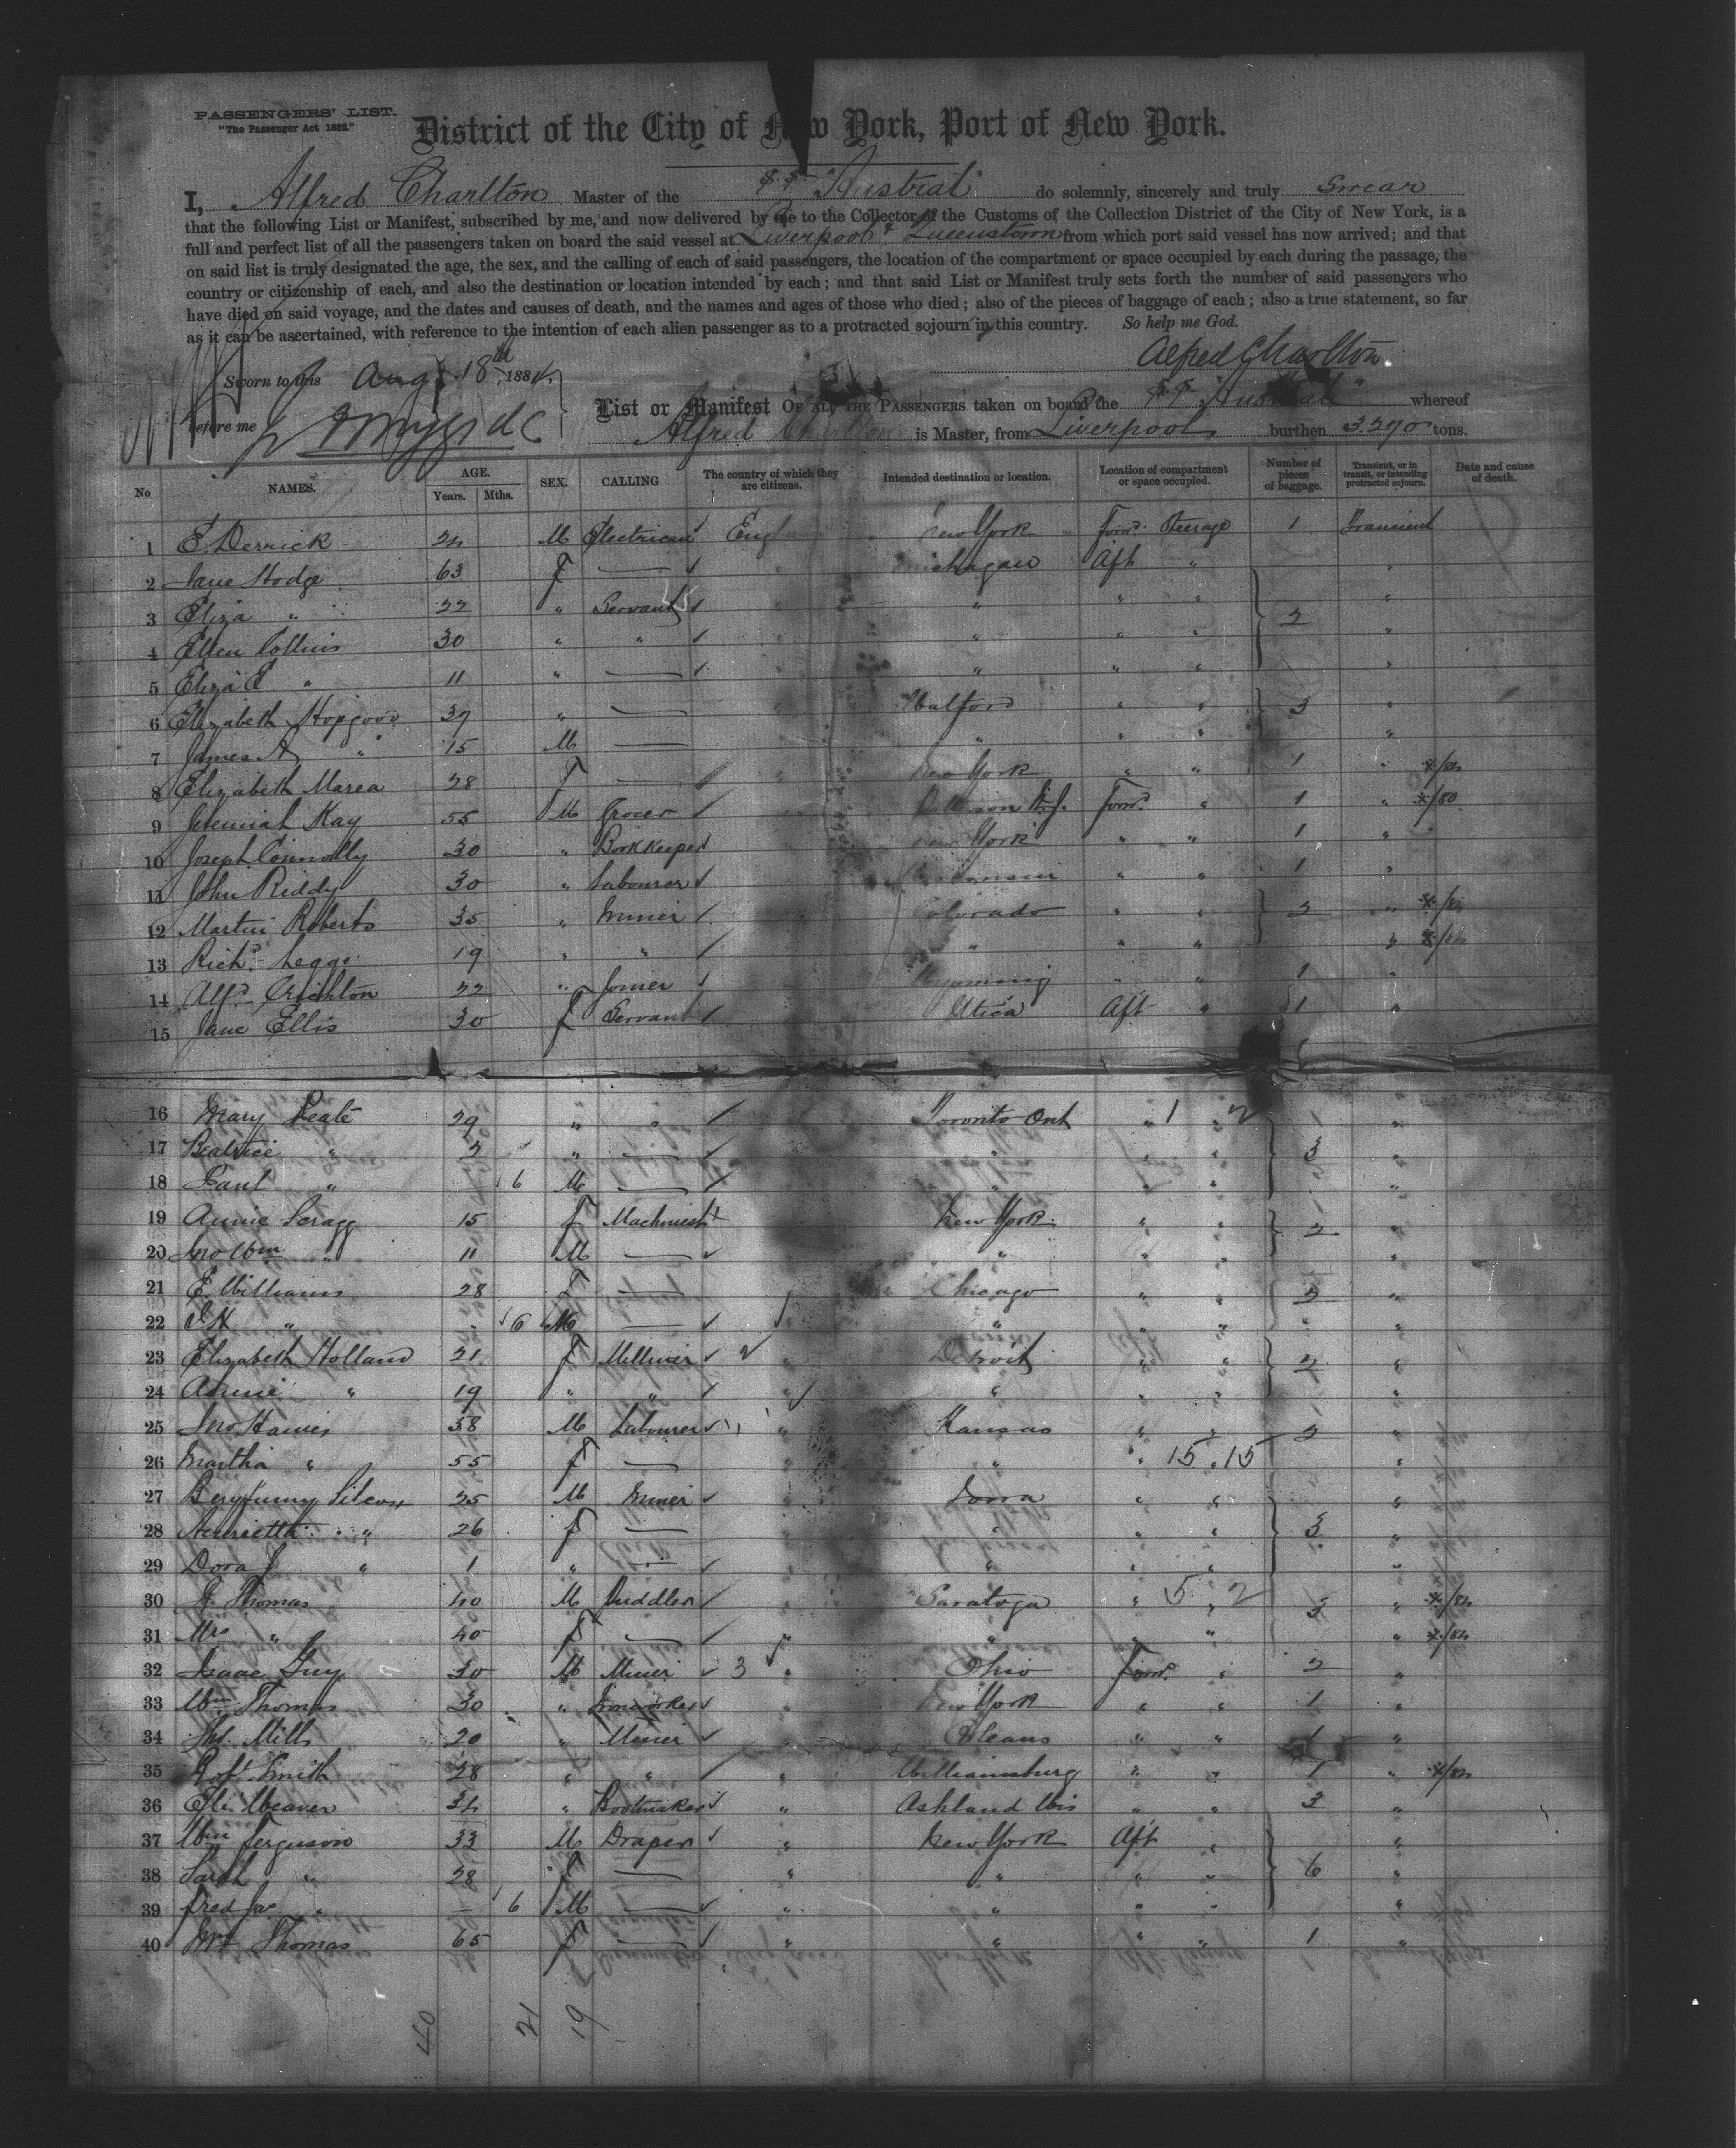 PASSENGERS' LIST.
"The Passenger Act 1882."
District of the City of New York, Port of New York.
I, Alfred Charlton Master of the S.S. "Austral" do solemnly, sincerely and truly Swear
that the following List or Manifest, subscribed by me, and now delivered by me to the Collector of the Customs of the Collection District of the City of New York, is a
full and perfect list of all the passengers taken on board the said vessel at Liverpool & Queenstown from which port said vessel has now arrived; and that
on said list is truly designated the age, the sex, and the calling of each of said passengers, the location of the compartment or space occupied by each during the passage, the
country or citizenship of each, and also the destination or location intended by each; and that said List or Manifest truly sets forth the number of said passengers who
have died on said voyage, and the dates and causes of death, and the names and ages of those who died; also of the pieces of baggage of each; also a true statement, so far
as it can be ascertained, with reference to the intention of each alien passenger as to a protracted sojourn in this country. So help me God.
Alfred Charlton
Sworn to this Aug 18th 1884
before me
List or Manifest OF ALL THE PASSENGERS taken on board the S.S. "Austral" whereof
Alfred Charlton is Master, from Liverpool burthen 3.270 tons.
No NAMES. AGE. Years. Mths. SEX. CALLING The country of which they are citizens. Intended destination or location. Location of compartment or space occupied. Number of pieces of baggage. Transient, or in transit, or intending protracted sojourn. Date and cause of death.
1 E Derrick 24 M Electrician Engla New York Forwd. Steerage 1 Transient
2 Jane Hodge 63 F — Michigan Aft "
3 Eliza " 22 " Servant " " " 2 "
4 Ellen Collins 30 " " " " " "
5 Eliza E " 11 " — " " " "
6 Elizabeth Hopgood 37 " — " " 3 "
7 James A " 15 M — " " " "
8 Elizabeth Marea 28 F — New York " " 1 "
9 Jeremiah Kay 55 M Grocer N.J. Forwd. " 1 "
10 Joseph Connolly 30 " Bookkeeper New York " " 1 "
11 John Reddy 30 " Labourer " " 1 "
12 Martin Roberts 35 " Miner Colorado " " 2 "
13 Richd. Legge 19 " " " " " "
14 Alfd. Crichton 22 " Joiner Wyoming " " 1 "
15 Jane Ellis 30 F Servant Utica Aft " 1 "
16 Mary Peate 29 " " Toronto Ont " 1 " 2 "
17 Beatrice " 2 " — " " " 3 "
18 Paul " 6 M — " " " "
19 Annie Scragg 15 F Machinist New York " " 2 "
20 Jno Wm " 11 M — " " " "
21 E. Williams 28 F — Chicago " " 2 "
22 " 6 M — " " " " "
23 Elizabeth Holland 21 F Milliner Detroit " " 2 "
24 Annie " 19 " " " " " " "
25 Jno 58 M Labourer " Kansas " " 2 "
26 Martha " 55 F — " " 15 " 15 "
27 25 M Miner " " " "
28 Henrietta " 26 F — " " " 3 "
29 Dora J " 1 " — " " " "
30 Thomas 40 M Puddler Saratoga " 5 " 2 3 "
31 Mrs " 40 F — " " " " "
32 Isaac Guy 30 M Miner 3 " Ohio Forwd. " 2 "
33 Wm Thomas 30 " Ironworker New York " " 1 "
34 Mills 20 " Miner Orleans " " 1 "
35 Robt Smith 28 " " " Williamsburg " " 1 "
36 Eli Weaver 34 " Bootmaker " Ashland Wis " " 3 "
37 Wm Ferguson 33 M Draper " New York Aft " "
38 Sarah " 28 F — " " " " 6 "
39 Fred Jas " — 6 M — " " " " "
40 Mrs Thomas 65 F — " " " " 1 "
40 21 19